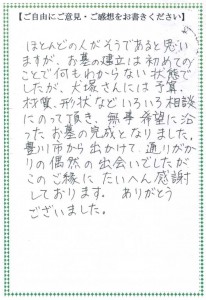 【ご自由にご意見・ご感想をお書きください】
ほとんどの人がそうであると思い
ますが、お墓の建立は初めての
ことで何もわからない状態で
したが、大塚さんには予算、
材質、形状などいろいろ相談
にのって頂き、無事希望に沿
ったお墓の完成となりました。
豊川市から出かけて通りがか
りの偶然の出会いでしたが
このご縁にたいへん感謝
しております。ありがとう
ございました。